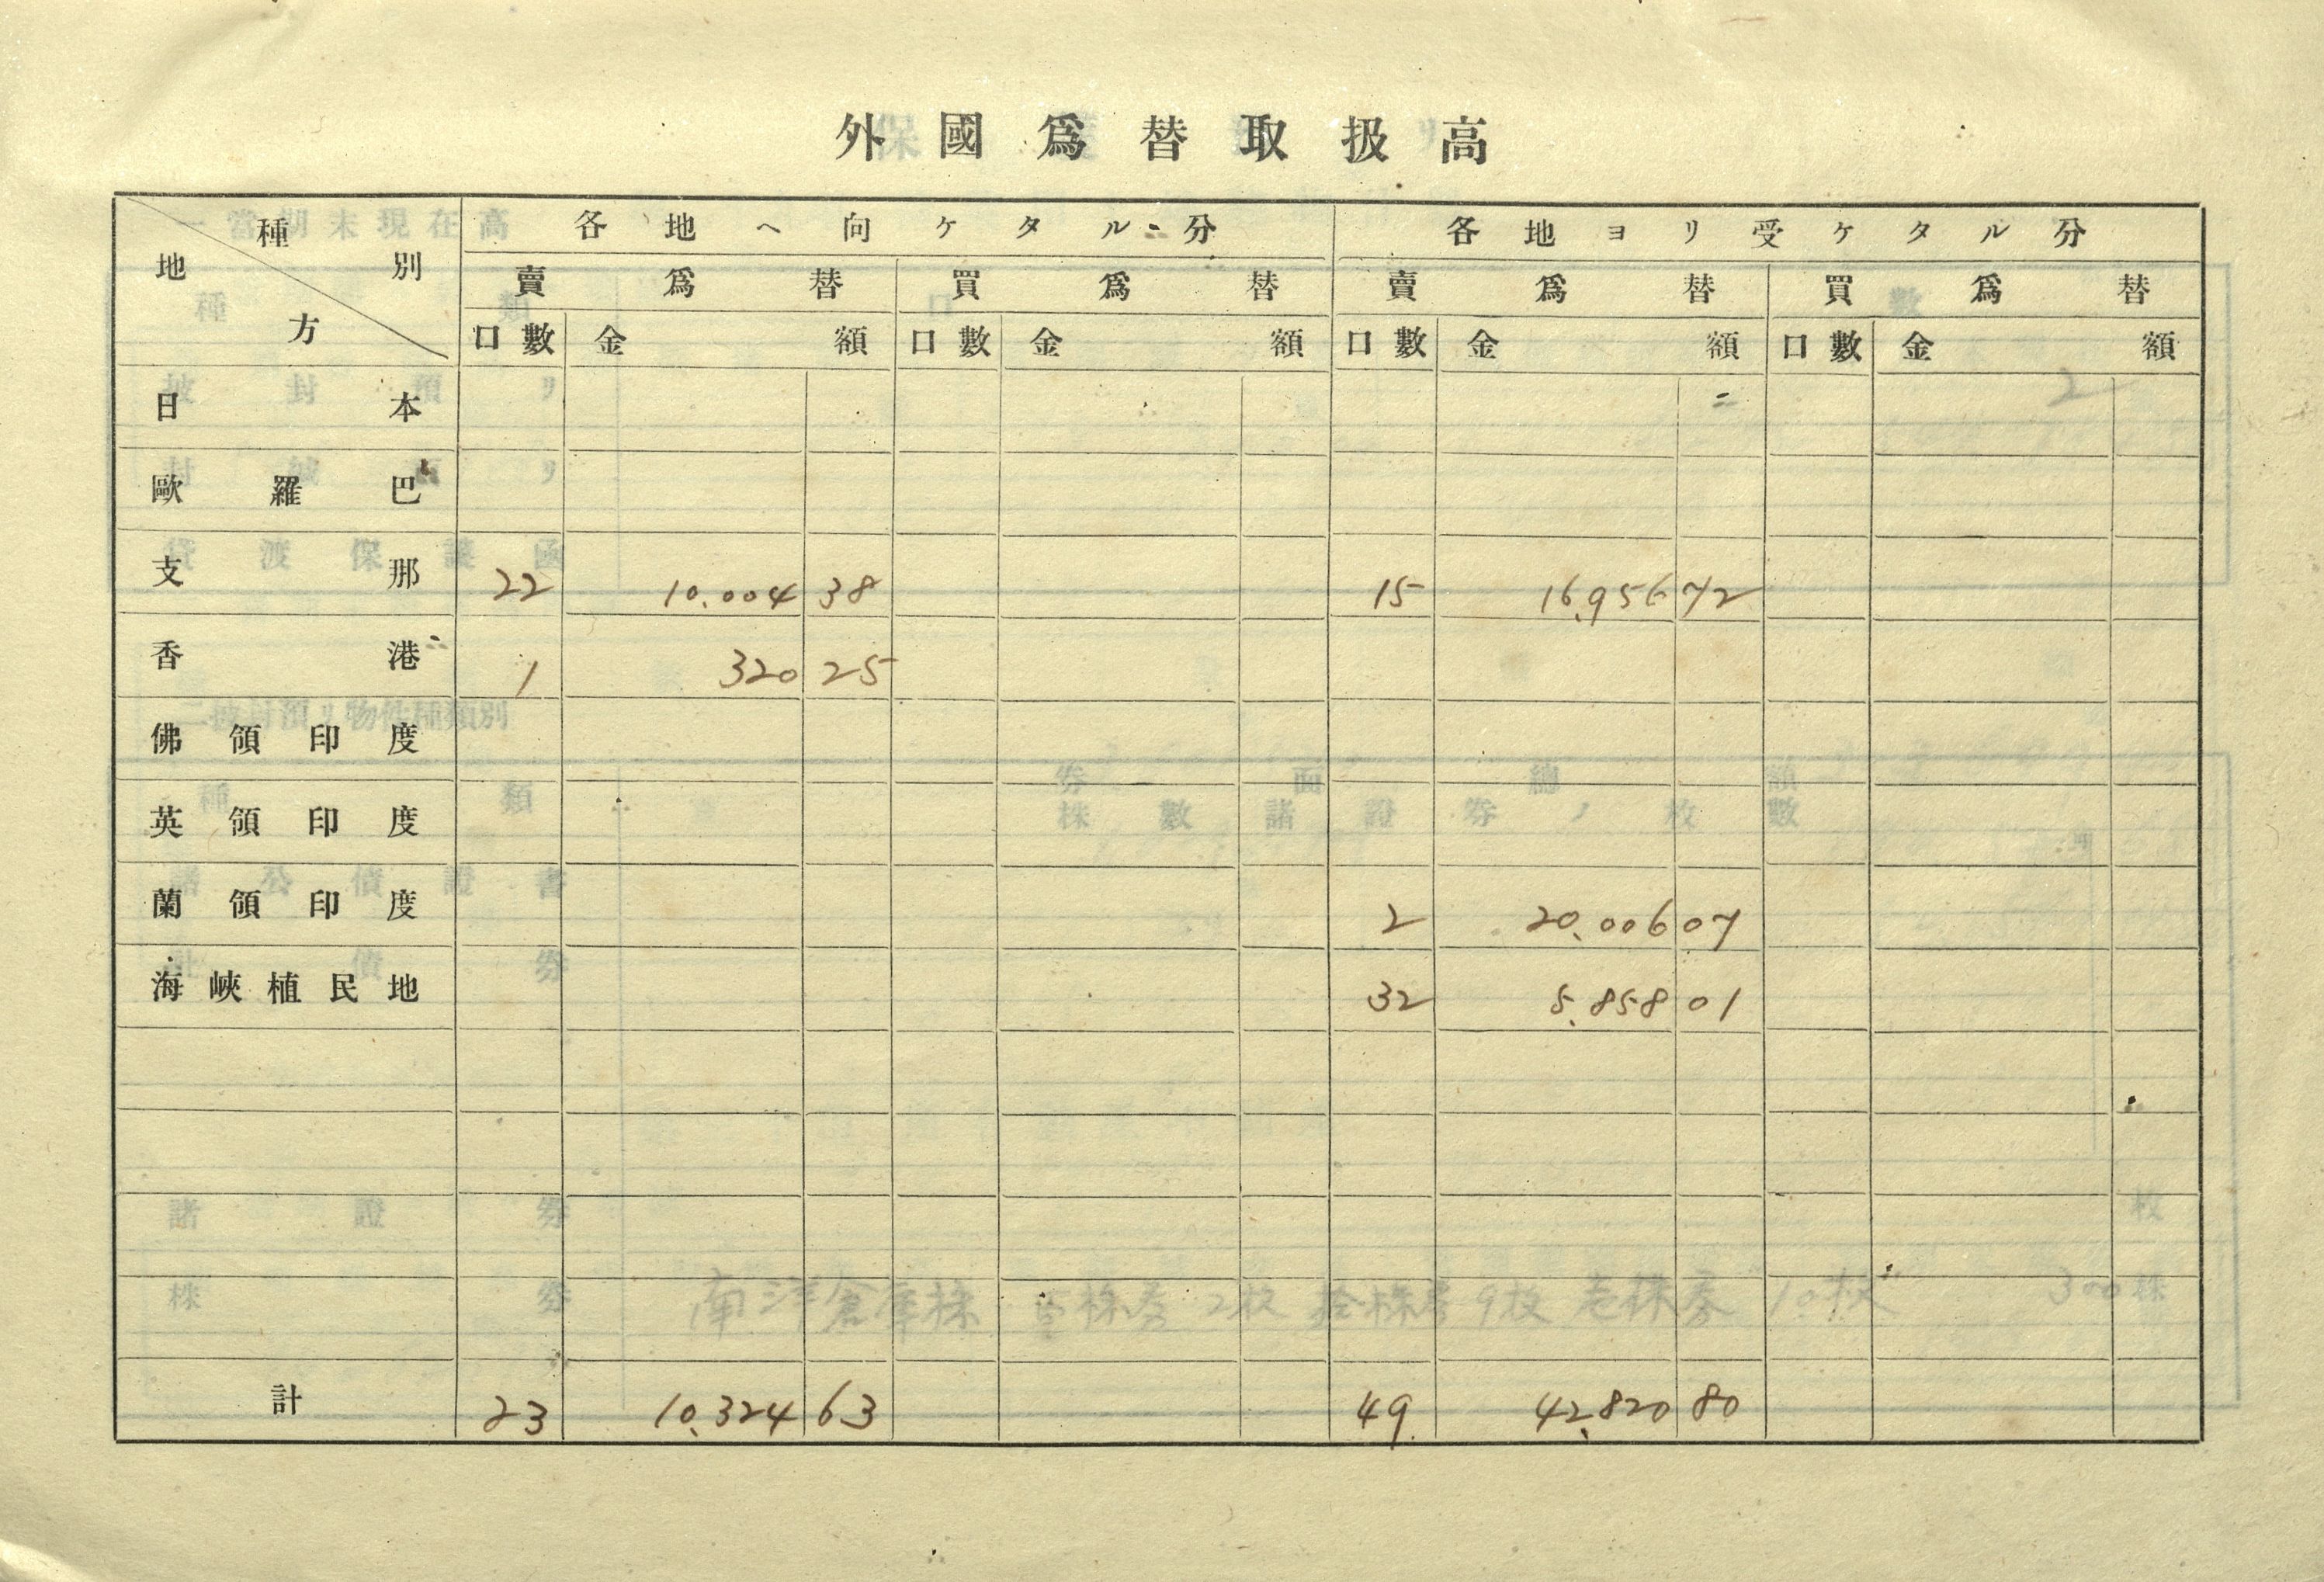 外國爲替取扱高
種別 地方 各地ヘ向ケタル分 各地ヨリ受ケタル分
賣爲替 買爲替 賣爲替 買爲替
口數 金額 口數 金額 口數 金額 口數 金額
日本
歐羅巴
支那 22 10.004 38 15 16.956 72
香港 1 320 25
佛領印度
英領印度
蘭領印度 2 20.006 07
海峽植民地 32 5.858 01
計 23 10.324 63 49 42.820 80